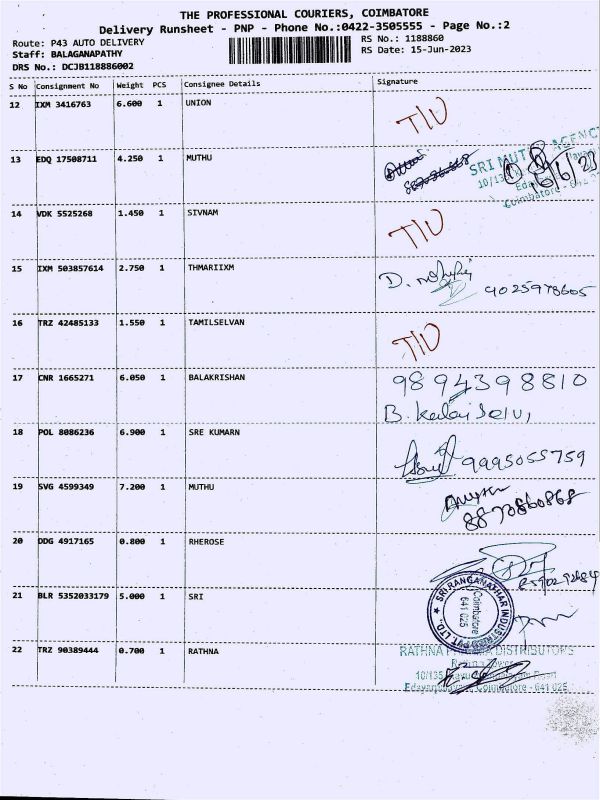 THE PROFESSIONAL COURIERS, COIMBATORE
Delivery Runsheet - PNP - Phone No.:0422-3505555 - Page No.:2
Route: P43 AUTO DELIVERY
RS No.: 1188860
Staff: BALAGANAPATHY
RS Date: 15-Jun-2023
DRS No.: DCJB118886002
S No Consignment No Weight PCS Consignee Details Signature
12 IXM 3416763 6.600 1 UNION
T/U
13 EDQ 17508711 4.250 1 MUTHU
SRI MUTHU AGENC
10/13
Coimbatore
14 VDK 5525268 1.450 1 SIVNAM
T/U
15 IXM 503857614 2.750 1 THMARIIXM
D. 9025978605
16 TRZ 42485133 1.550 1 TAMILSELVAN
T/U
17 CNR 1665271 6.050 1 BALAKRISHAN
9894398810
B. Kalai Selvi,
18 POL 8086236 6.900 1 SRE KUMARN
9995055759
19 SVG 4599349 7.200 1 MUTHU
8870860868
20 DDG 4917165 0.800 1 RHEROSE
21 BLR 5352033179 5.000 1 SRI
SRI RANGANATHAR INDUSTRIES PVT. LTD.,
Coimbatore
641 025
22 TRZ 90389444 0.700 1 RATHNA
RATHNA DISTRIBUTORS
10/135
Coimbatore - 641 025